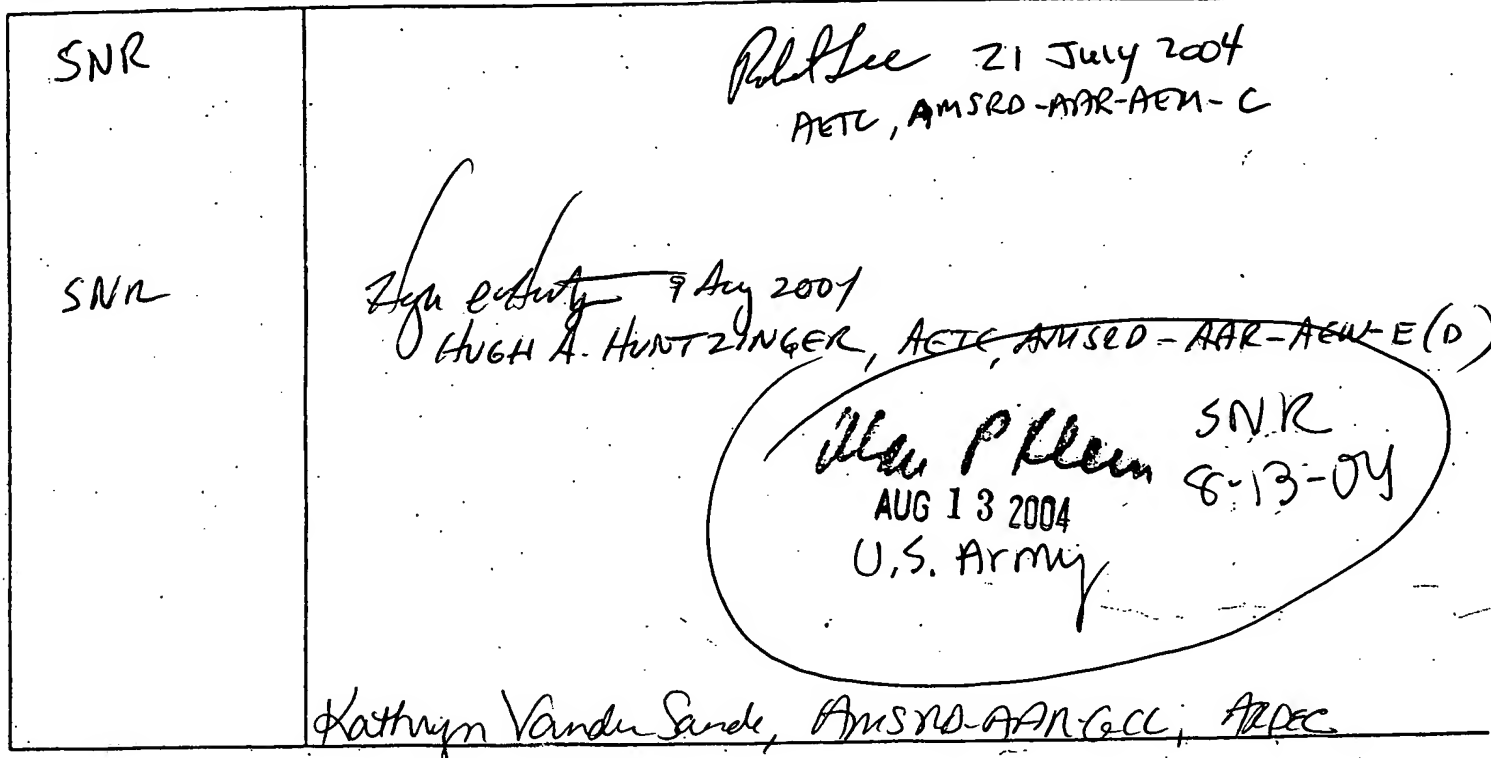 SNR
Robert Lee 21 July 2004
AETC, AMSRD-AAR-AEM-C
SNR
9 Aug 2004
HUGH A. HUNTZINGER, AETC, AMSRD-AAR-AEW-E(D)
Alan P Klein SNR
8-13-04
AUG 13 2004
U.S. Army
Kathryn Vander Sande, AMSRD-AAR-GCL, ARDEC